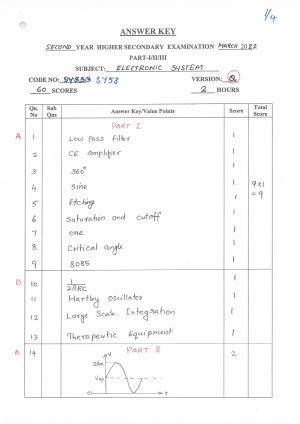 1/4
ANSWER KEY
SECOND YEAR HIGHER SECONDARY EXAMINATION MARCH 2022
PART-I/II/III
SUBJECT: ELECTRONIC SYSTEM
CODE NO: SY553 SY58 VERSION: Q
60 SCORES 2 HOURS
Qn. No Sub Qns Answer Key/Value Points Score Total Score
PART I
A 1 Low Pass Filter 1
2 CE amplifier 1
3 360° 1
4 Sine 1 9x1 = 9
5 Etching 1
6 Saturation and cutoff 1
7 one 1
8 Critical angle 1
9 8085 1
B 10 1/2πRC 1
11 Hartley Oscillator 1
12 Large Scale Integration 1
13 Therapeutic Equipment 1
PART II
A 14 2
V
t